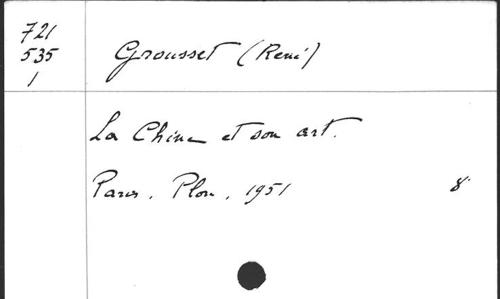 721
535
1
Grousset (René)
La Chine et son art.
Paris, Plon, 1951 8°